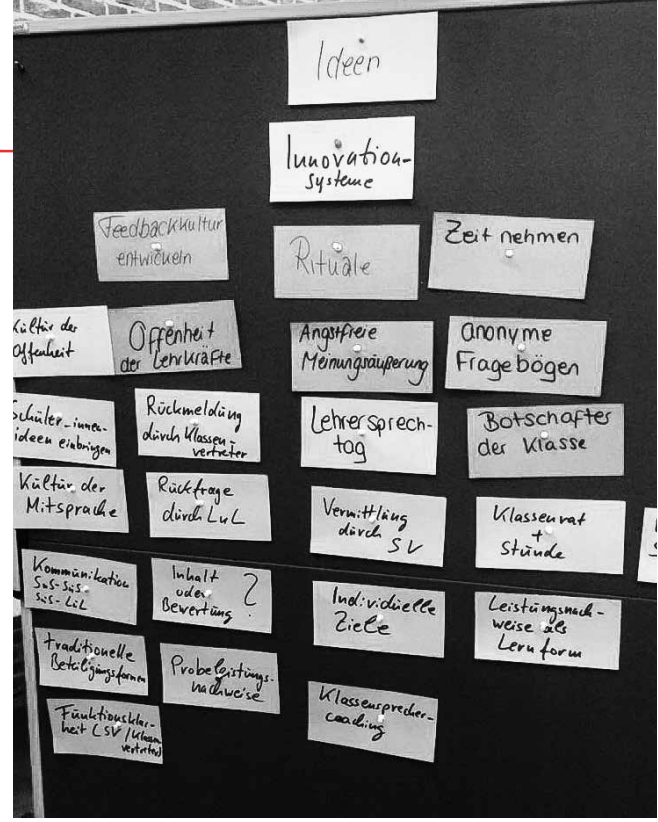 Ideen
Innovation-
systeme
Feedbackkultur
entwickeln
Rituale
Zeit nehmen
Kültür der
Offenheit
Offenheit
der Lehrkräfte
Angstfreie
Meinungsäußerung
anonyme
Fragebögen
Schüler_innen-
ideen einbringen
Rückmeldüng
dürch Klassen-
vertreter
Lehrersprech-
tag
Botschafter
der Klasse
Kültür der
Mitsprache
Rückfrage
dürch LuL
Vermittlüng
dürch SV
Klassenrat
+
Stünde
Kommünikation
SüS-SüS
SüS-LüL
Inhalt
oder
Bewertüng ?
Individüelle
Ziele
Leistüngsnach-
weise als
Lernform
traditionelle
Beteiligüngsformen
Probeleistüngs-
nachweise
Klassensprecher-
coaching
Fünktionsklar-
heit (SV/Klassen
vertreter)